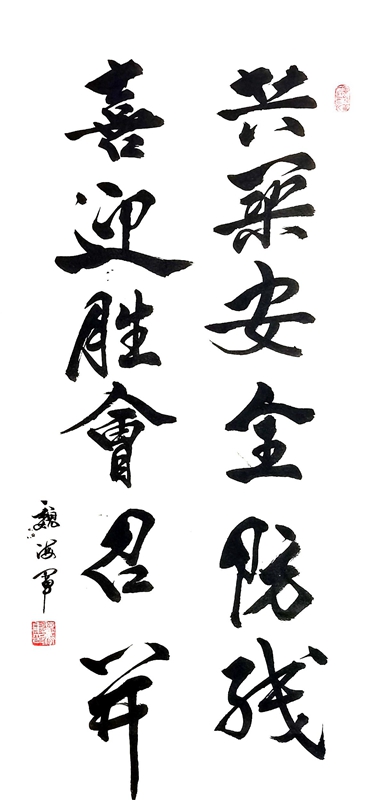 共築安全防线
喜迎胜會召开
魏海军